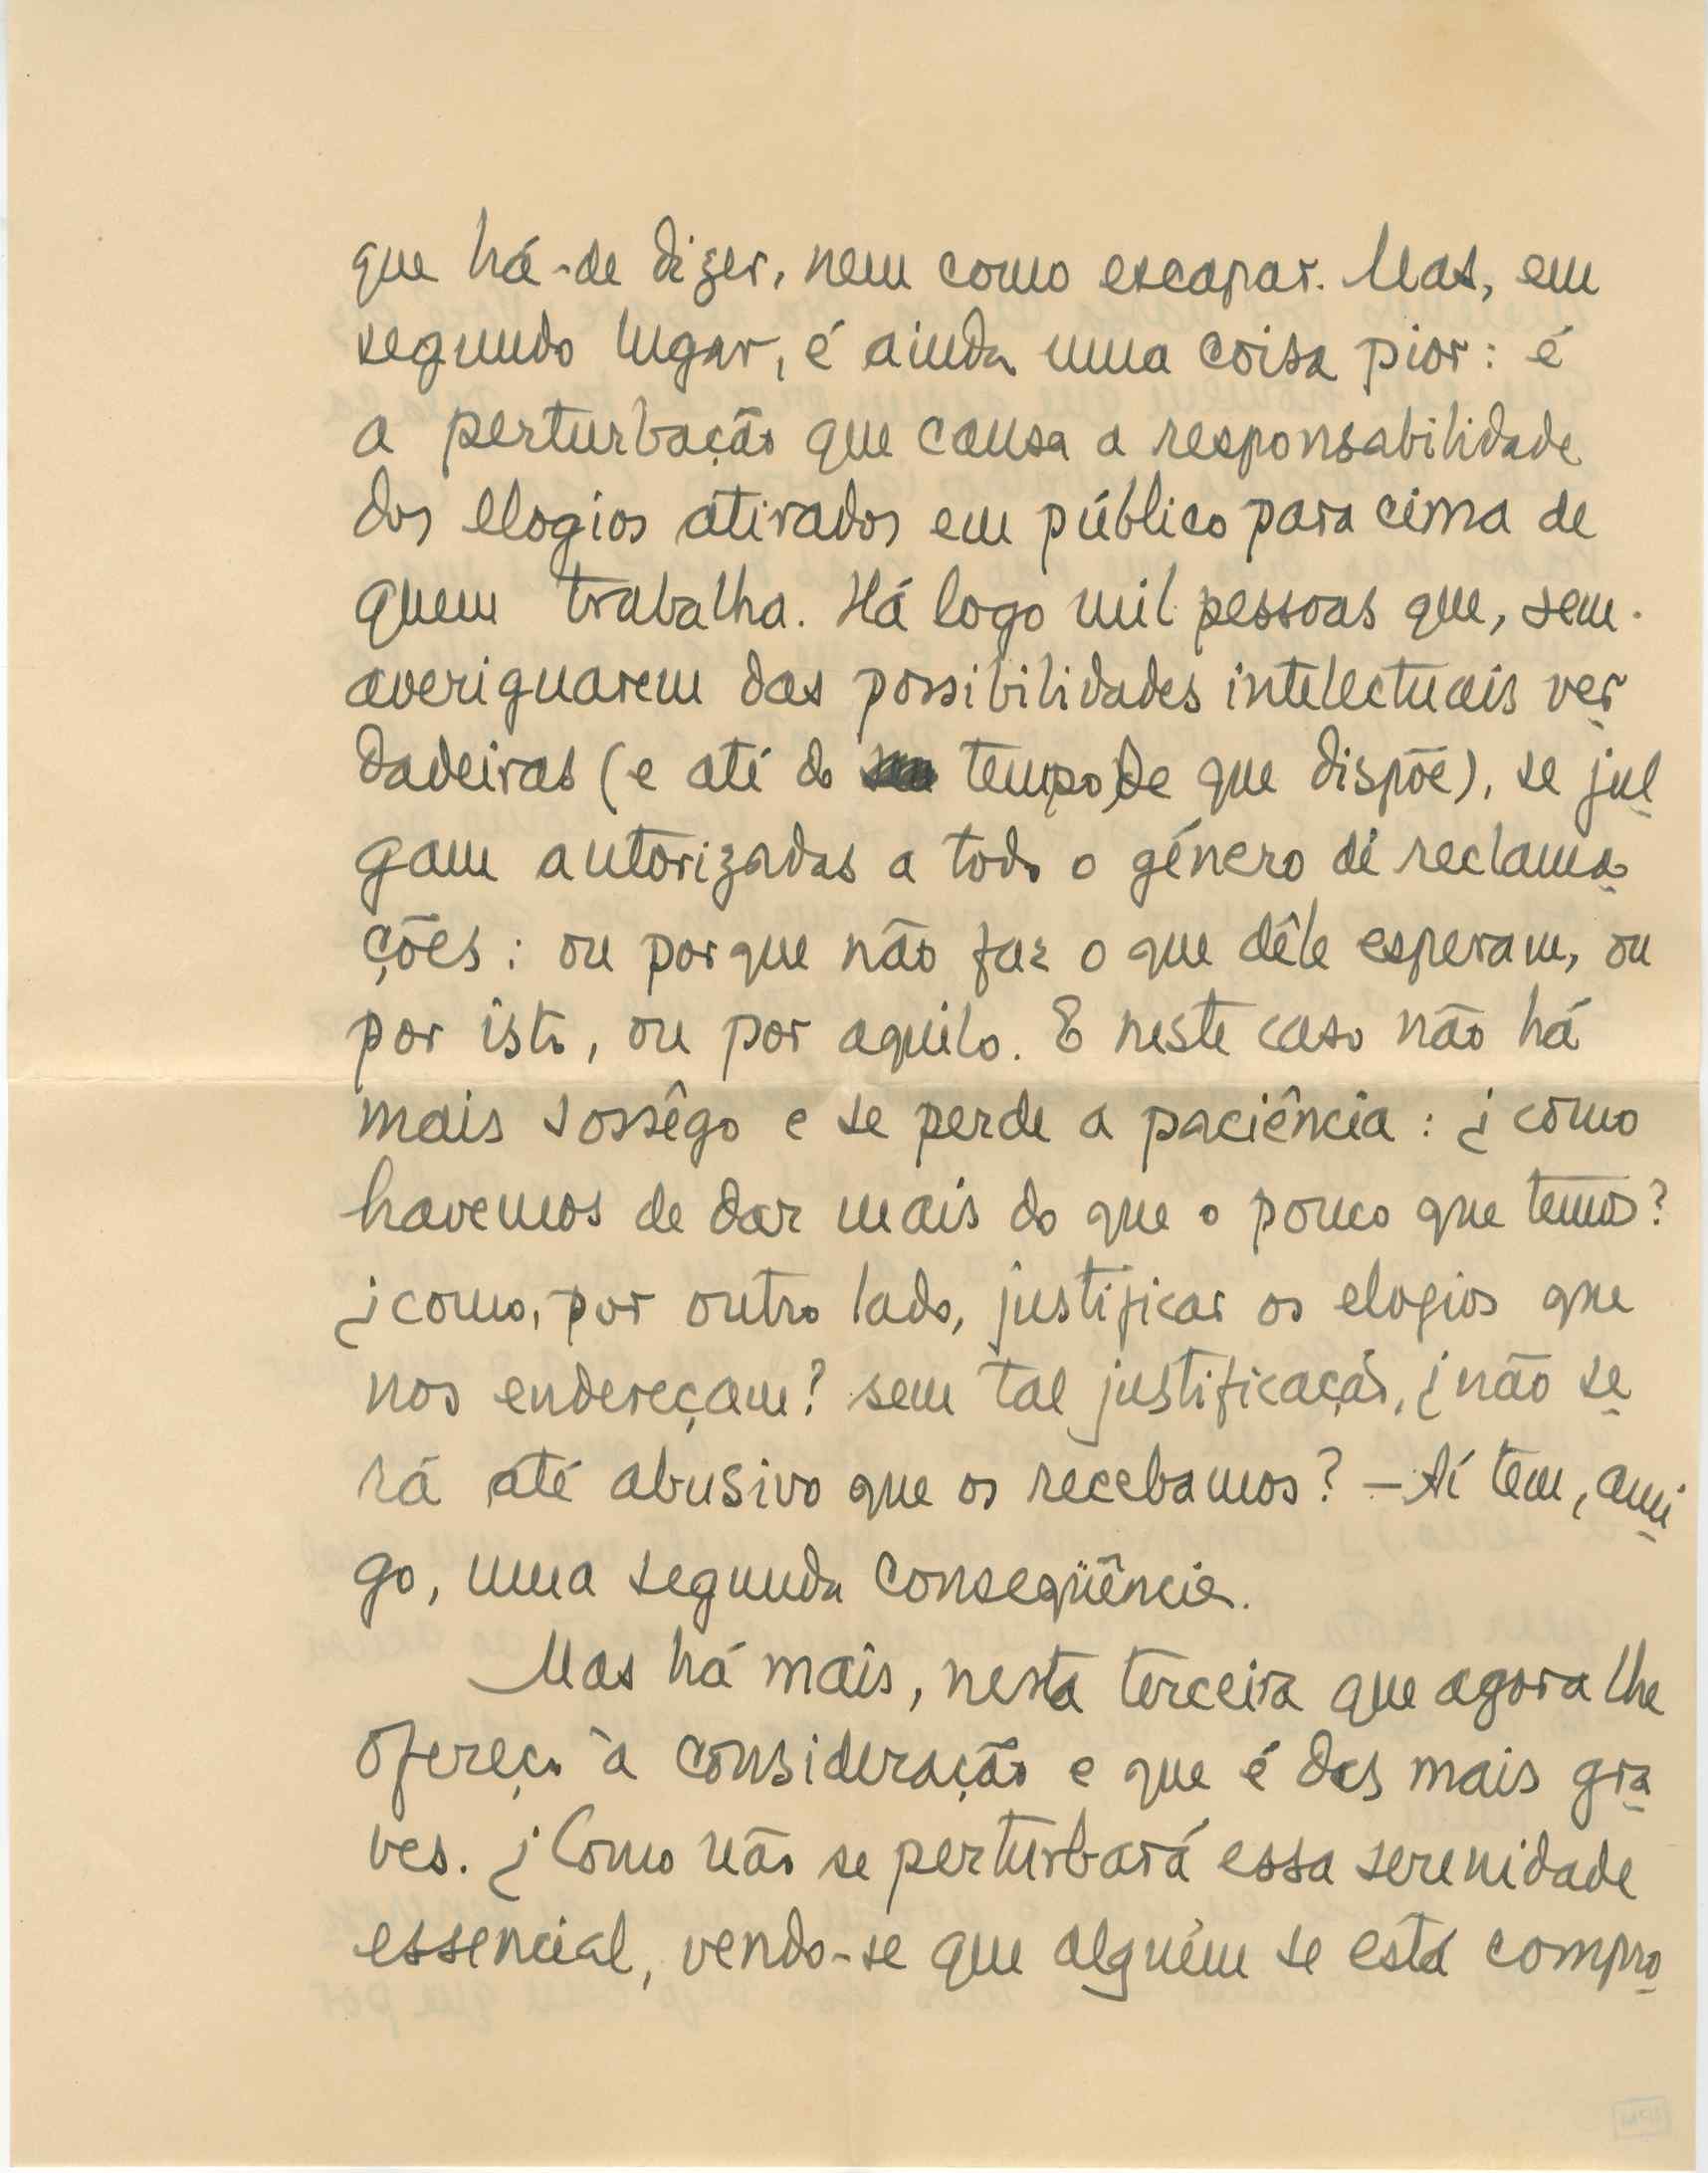 que há-de dizer, nem como escapar. Mas, em
segundo lugar, é ainda uma coisa pior: é
a perturbação que causa a responsabilidade
dos elogios atirados em público para cima de
quem trabalha. Há logo mil pessoas que, sem
averiguarem das possibilidades intelectuais ver
dadeiras (e até do tempo de que dispõe), se jul
gam autorizadas a todo o género de reclama
ções: ou porque não faz o que dêle esperam, ou
por isto, ou por aquilo. E neste caso não há
mais sossêgo e se perde a paciência: ¿como
havemos de dar mais do que o pouco que temos?
¿como, por outro lado, justificar os elogios que
nos endereçam? sem tal justificação, ¿não se
rá até abusivo que os recebamos? — Aí tem, ami
go, uma segunda conseqüência.
Mas há mais, nesta terceira que agora lhe
ofereço à consideração e que é das mais gra
ves. ¿Como não se perturbará essa serenidade
essencial, vendo-se que alguém se está compro